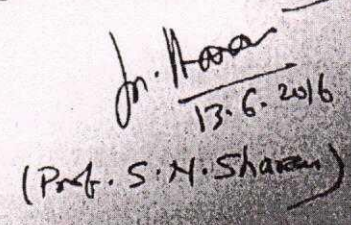 13.6.2016
(Prof. S. N. Sharan)